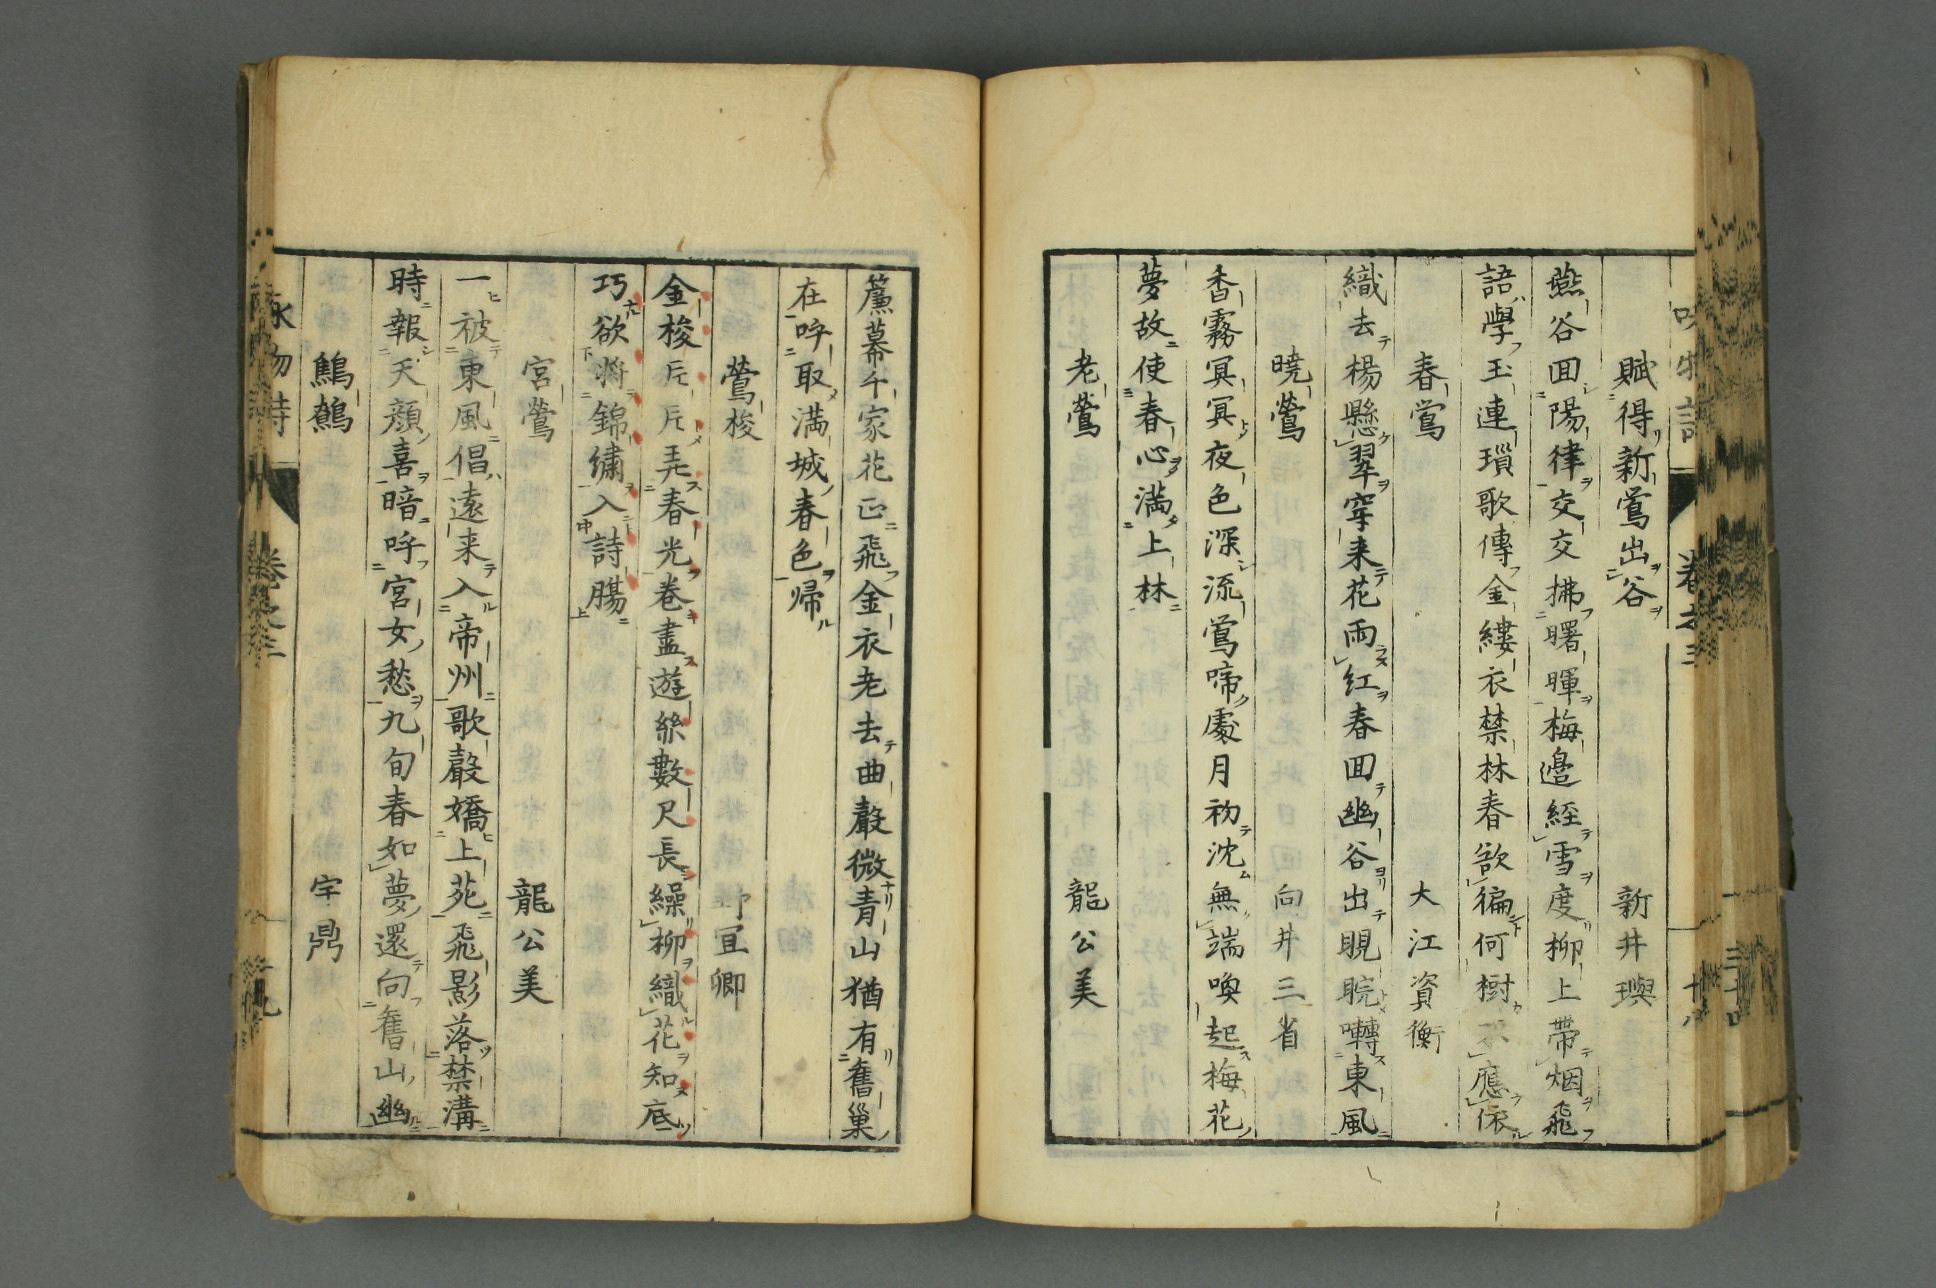 賦得新鶯出谷 新井璵
燕谷回陽律交交拂曙暉梅邊經雪度柳上帶烟飛
語學玉連瑣歌傳金縷衣禁林春欲徧何樹不應依
春鶯 大江資衡
織去楊懸翠穿来花雨紅春回幽谷出睍睆囀東風
曉鶯 向井三省
香霧冥冥夜色深流鶯啼處月初沈無端喚起梅花
夢故使春心満上林
老鶯 龍公美
簾幕千家花正飛金衣老去曲聲微青山猶有舊巢
在呼取満城春色帰
鶯梭 宜卿
金梭片片弄春光巻盡遊絲數尺長繰柳織花知底
巧欲将錦繍入詩腸
宮鶯 龍公美
一被東風倡遠来入帝州歌聲嬌上苑飛影落禁溝
時報天顔喜暗呼宮女愁九旬春如夢還向舊山幽
鷓鴣 宇鼎